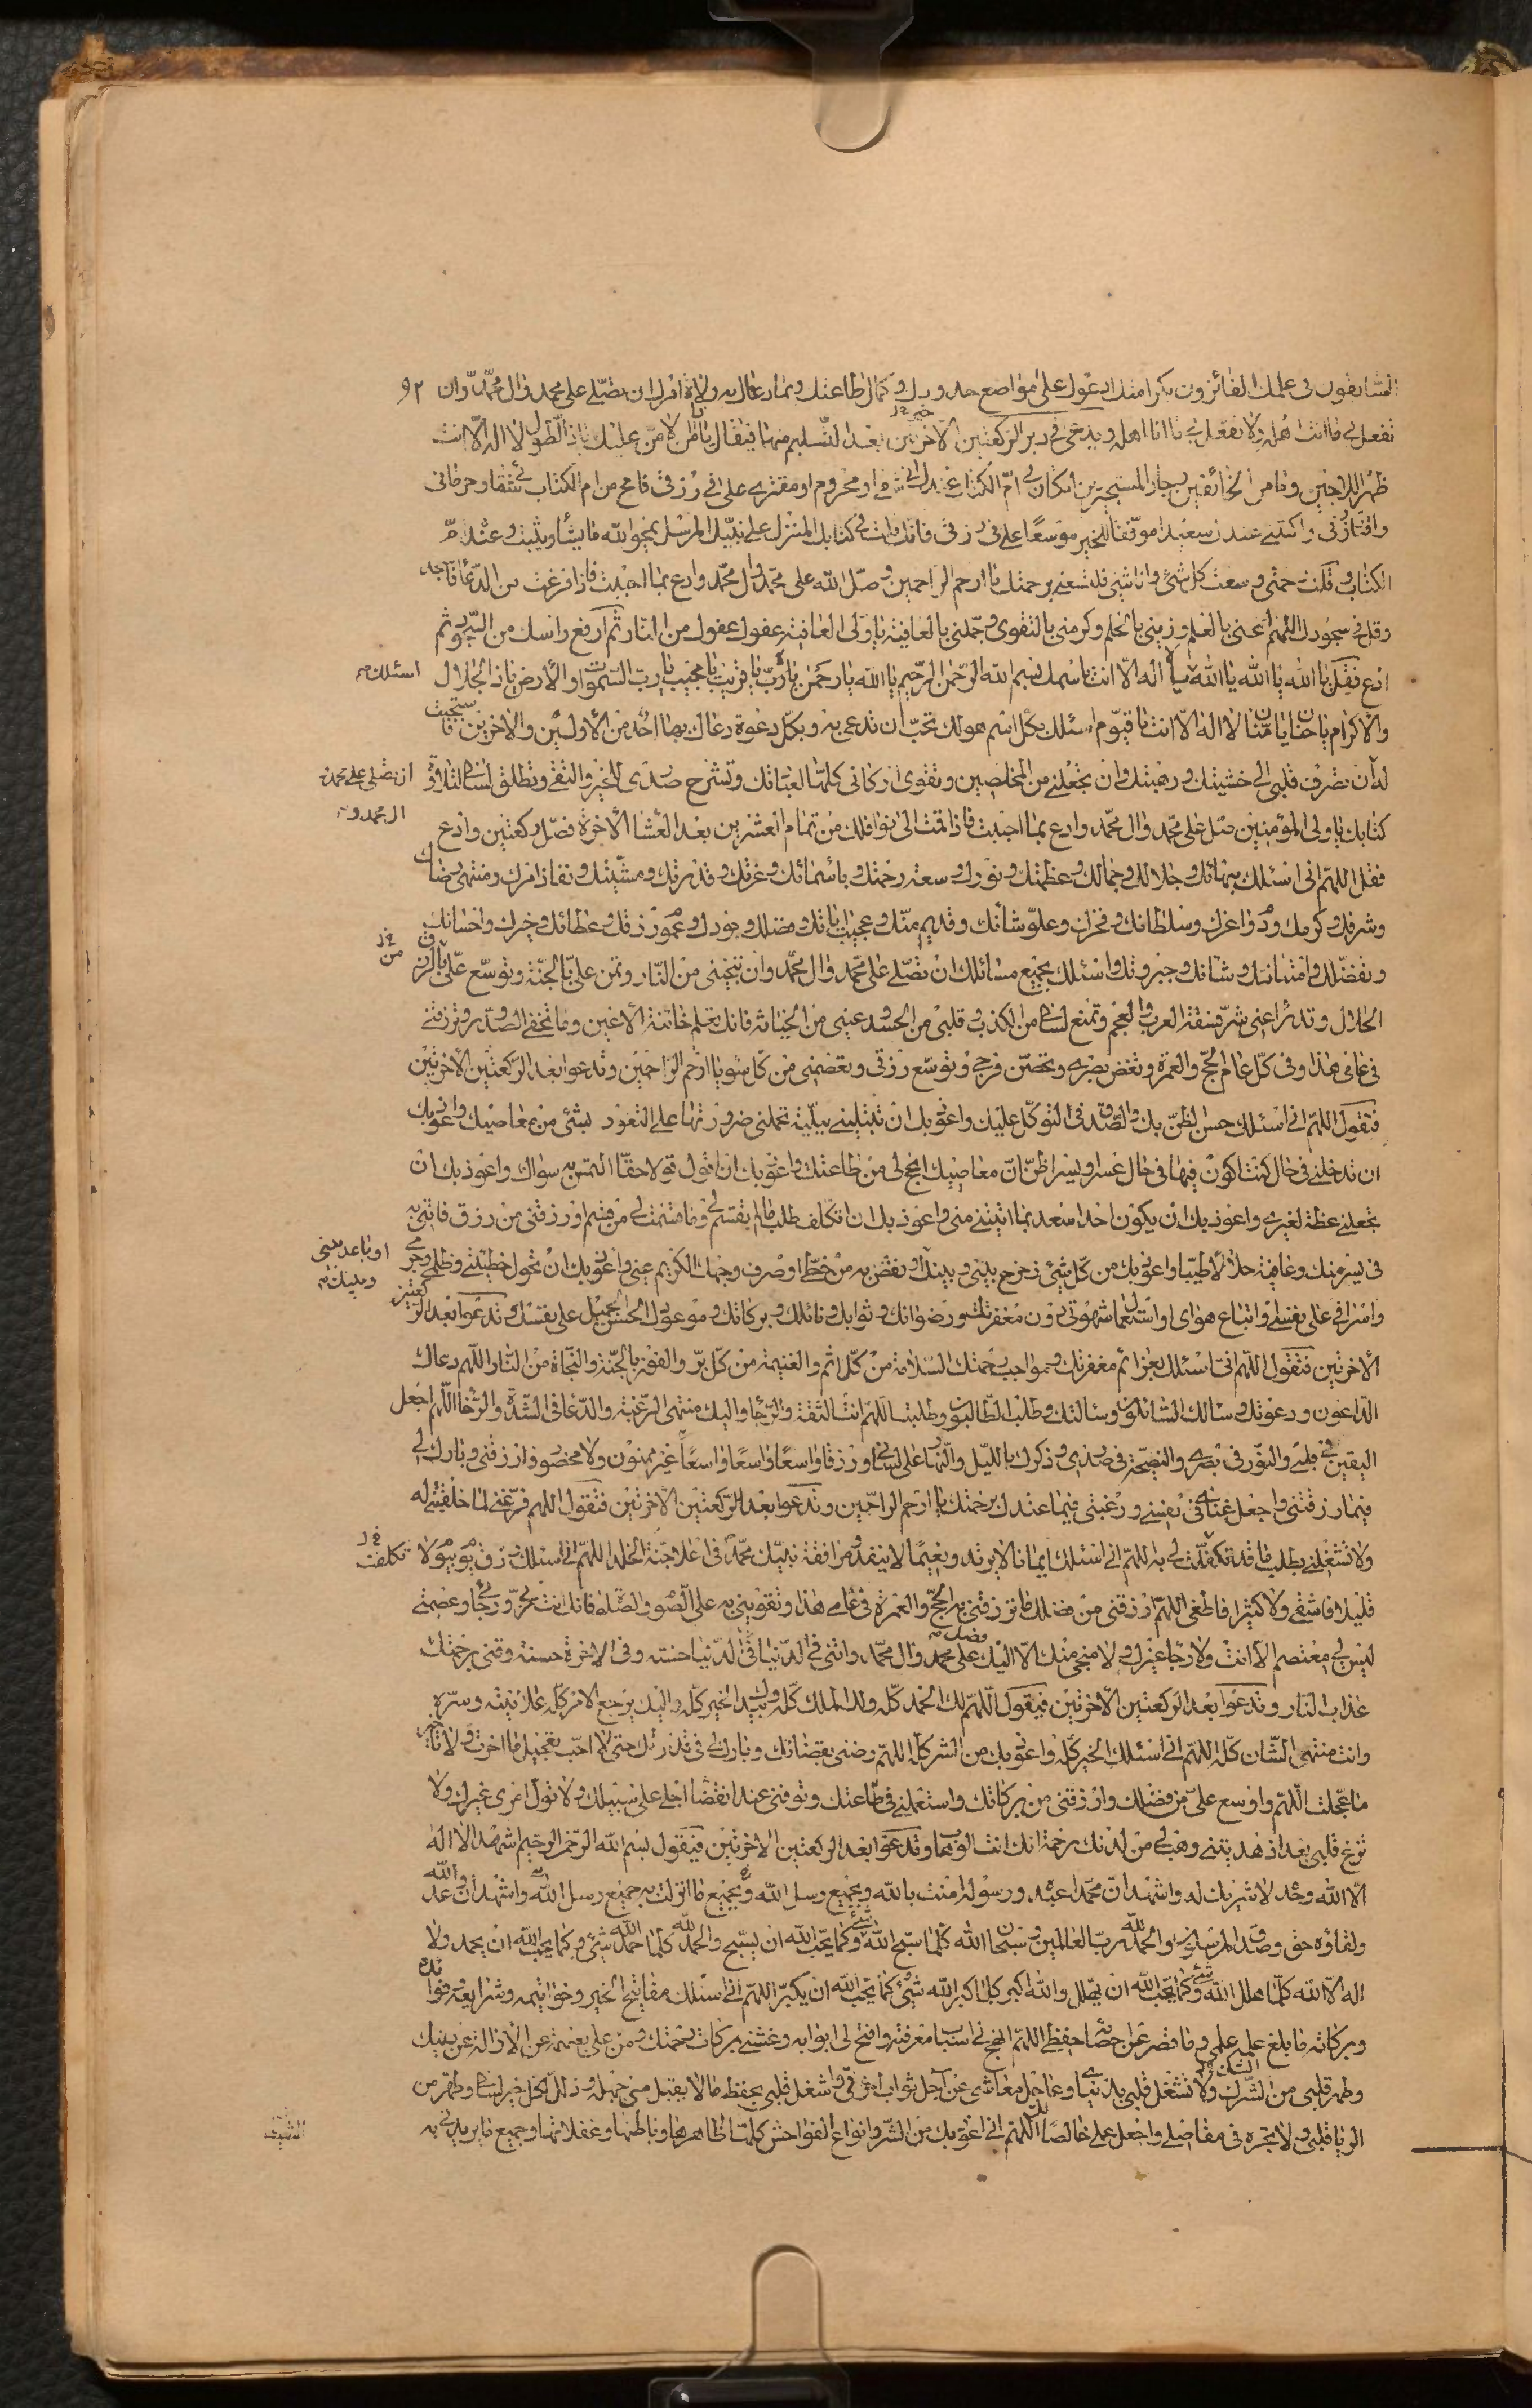 السابقون فى علمك الفائزون بكرامتك ادعوك على مواضع حدودك وكمال طاعتك وبما يدعوك به ولاة امرك ان تصلى على محمد وال محمد وان ٩٢
تفعل بى ما انت اهله ولا تفعل بى ما انا اهله ويدعى فى دبر الركعتين الاخرتين بعد التسليم منهما فيقال يا من لا يمن عليك يا ذا الطول لا اله الا انت
ظهر اللاجين ومامن الخائفين وجار المستجيرين ان كان فى ام الكتاب عندك انى شقى او محروم او مقتر على فى رزقى فامح من ام الكتاب شقائى وحرمانى
واقتار رزقى واكتبنى عندك سعيدا موفقا للخير موسعا على فى رزقى فانك قلت فى كتابك المنزل على نبيك المرسل يمحو الله ما يشاء ويثبت وعنده ام
الكتاب وقلت ورحمتى وسعت كل شئ وانا شئ فلتسعنى رحمتك يا ارحم الراحمين وصل الله على محمد وال محمد وادع بما احببت فاذا فرغت من الدعاء فاسجد
وقل فى سجودك اللهم اغننى بالعلم وزينى بالحلم وكرمنى بالتقوى وجملنى بالعافية يا ولى العافية عفوك عفوك من النار ثم ارفع راسك من السجود ثم
ادع فقل يا الله يا الله يا الله اسئلك بلا اله الا انت باسمك بسم الله الرحمن الرحيم يا الله يا رحمن يا رب يا قريب يا مجيب يا رب السموات والارض يا ذا الجلال
والاكرام يا حنان يا منان لا اله الا انت يا قيوم اسئلك بكل اسم هو لك تحب ان تدعى به وبكل دعوة دعاك بها احد من الاولين والاخرين فاستجبت
له ان تصرف قلبى الى خشيتك ورهبتك وان تجعلنى من المخلصين وتقوى اركانى كلها لعبادتك وتشرح صدرى للخير والتقى وتطلق لسانى لتلاوة
ان تصلى على محمد وال محمد و
كتابك يا ولى المؤمنين صل على محمد وال محمد وادع بما احببت فاذا قمت الى نوافلك من تمام العشرين بعد العشاء الاخرة فصل ركعتين وادع
فقل اللهم انى اسئلك ببهائك وجلالك وجمالك وعظمتك ونورك وسعة رحمتك وباسمائك وعزتك وقدرتك ومشيتك ونفاذ امرك ومنتهى رضاك
وشرفك وكرمك ودوام عزك وسلطانك وفخرك وعلو شانك وقديم منك وعجيب اياتك وفضلك وجودك وعموم رزقك وعطائك وخيرك واحسانك
وتفضلك وامتنانك وشانك وجبروتك واسئلك بجميع مسائلك ان تصلى على محمد وال محمد وان تنجينى من النار وتمن على بالجنة وتوسع على من الرزق
الحلال وتدرء عنى شر فسقة العرب والعجم وتمنع لسانى من الكذب وقلبى من الحسد وعينى من الخيانة فانك تعلم خائنة الاعين وما تخفى الصدور وترزقنى
فى عامى هذا وفى كل عام الحج والعمرة وتغض بصرى وتحصن فرجى وتوسع رزقى وتعصمنى من كل سوء يا ارحم الراحمين وتدعوا بعد الركعتين الاخرتين
فتقول اللهم انى اسئلك حسن الظن بك والصدق فى التوكل عليك واعوذ بك ان تبتلينى ببلية تحملنى ضرورتها على التعوذ بشئ من معاصيك واعوذ بك
ان تدخلنى فى حال كنت اكون فيها فى حال عسر او يسر اظن ان معاصيك انجح لى من طاعتك واعوذ بك ان اقول قولا حقا التمس به سواك واعوذ بك ان
تجعلنى عظة لغيرى واعوذ بك ان يكون احد اسعد بما اتيتنى منى واعوذ بك ان اتكلف طلب ما لم تقسم لى وما قسمت لى من قسم او رزقتنى من رزق فاتنى به
فى يسر منك وعافية حلالا طيبا واعوذ بك من كل شئ زحزح بينى وبينك او باعد بينى وبينك او نقص به من حظى او صرف وجهك الكريم عنى واعوذ بك ان تحول خطيئتى وظلمى وجرمى
واسرافى على نفسى واتباع هواى واستعمال شهوتى دون مغفرتك ورضوانك وثوابك ونائلك وبركاتك وموعودك الحسن الجميل على نفسك وتدعوا بعد الركعتين
الاخرتين فتقول اللهم انى اسئلك بعزائم مغفرتك وبمواجب رحمتك السلامة من كل اثم والغنيمة من كل بر والفوز بالجنة والنجاة من النار اللهم دعاك
الداعون ودعوتك وسالك السائلون وسالتك وطلب الطالبون وطلبتك اللهم انت الثقة والرجاء واليك منتهى الرغبة والدعاء فى الشدة والرخاء اللهم اجعل
اليقين فى قلبى والنور فى بصرى والنصيحة فى صدرى وذكرك بالليل والنهار على لسانى ورزقا واسعا واسعا واسعا غير ممنون ولا محضور فارزقنى وبارك لى
فيما رزقتنى واجعل غنائى فى نفسى ورغبتى فيما عندك برحمتك يا ارحم الراحمين وتدعوا بعد الركعتين الاخرتين فتقول اللهم فرغنى لما خلقتنى له
ولا تشغلنى بطلب ما قد تكفلت لى به اللهم انى اسئلك ايمانا لا يرتد ونعيما لا ينفد ومرافقة نبيك محمد فى اعلا جنة الخلد اللهم انى اسئلك رزق يوم بيوم لا
قليلا فاشقى ولا كثيرا فاطغى اللهم ارزقنى من فضلك ما ترزقنى به الحج والعمرة فى عامى هذا وتقوينى به على الصوم والصلوة فانك انت ربى ورجائى وعصمتى
ليس لى معتصم الا انت ولا رجاء غيرك ولا منجى منك الا اليك فصل على محمد وال محمد واتنى فى الدنيا حسنة وفى الاخرة حسنة وقنى برحمتك
عذاب النار وتدعوا بعد الركعتين الاخرتين فيقول اللهم لك الحمد كله ولك الملك كله وبيدك الخير كله واليك يرجع الامر كله علانيته وسره
وانت منتهى الشان كله اللهم انى اسئلك من الخير كله واعوذ بك من الشر كله اللهم رضنى بقضائك وبارك لى فى قدرتك حتى لا احب تعجيل ما اخرت ولا تاخير
ما عجلت اللهم واوسع على من فضلك وارزقنى من بركاتك واستعملنى فى طاعتك وتوفنى عند انقضاء اجلى على سبيلك ولا تول امرى غيرك ولا
تزغ قلبى بعد اذ هديتنى وهب لى من لدنك رحمة انك انت الوهاب وتدعوا بعد الركعتين الاخرتين فيقول بسم الله الرحمن الرحيم اشهد الا اله
الا الله وحده لا شريك له واشهد ان محمدا عبده ورسوله امنت بالله وبجميع رسل الله وبجميع ما انزلت به جميع رسل الله واشهد ان وعد الله
ولقاؤه حق وصدق المرسلون والحمد لله رب العالمين وسبحان الله كلما سبح الله شئ وكما يحب الله ان يسبح والحمد لله كلما حمد الله شئ وكما يحب الله ان يحمد ولا
اله الا الله كلما هلل الله شئ وكما يحب الله ان يهلل والله اكبر كلما كبر الله شئ كما يحب الله ان يكبر اللهم انى اسئلك مفاتيح الخير وخواتيمه وشرايعه وفوائده
وبركاته ما بلغ علمه علمى وما قصر عن احصائه حفظى اللهم انهج لى اسباب معرفته وافتح لى ابوابه وغشنى بركات رحمتك ومن على بعصمة عن الازالة عن دينك
وطهر قلبى من الشك ولا تشغل قلبى بدنياى وعاجل معاشى عن آجل ثواب اخرتى واشغل قلبى بحفظ ما لا يقبل منى جهله وذلل لكل خير لسانى وطهر من
الريا قلبى ولا تجره فى مفاصلى واجعل عملى خالصا لك اللهم انى اعوذ بك من الشر وانواع الفواحش كلها ظاهرها وباطنها وغفلاتها وجميع ما يريدنى به